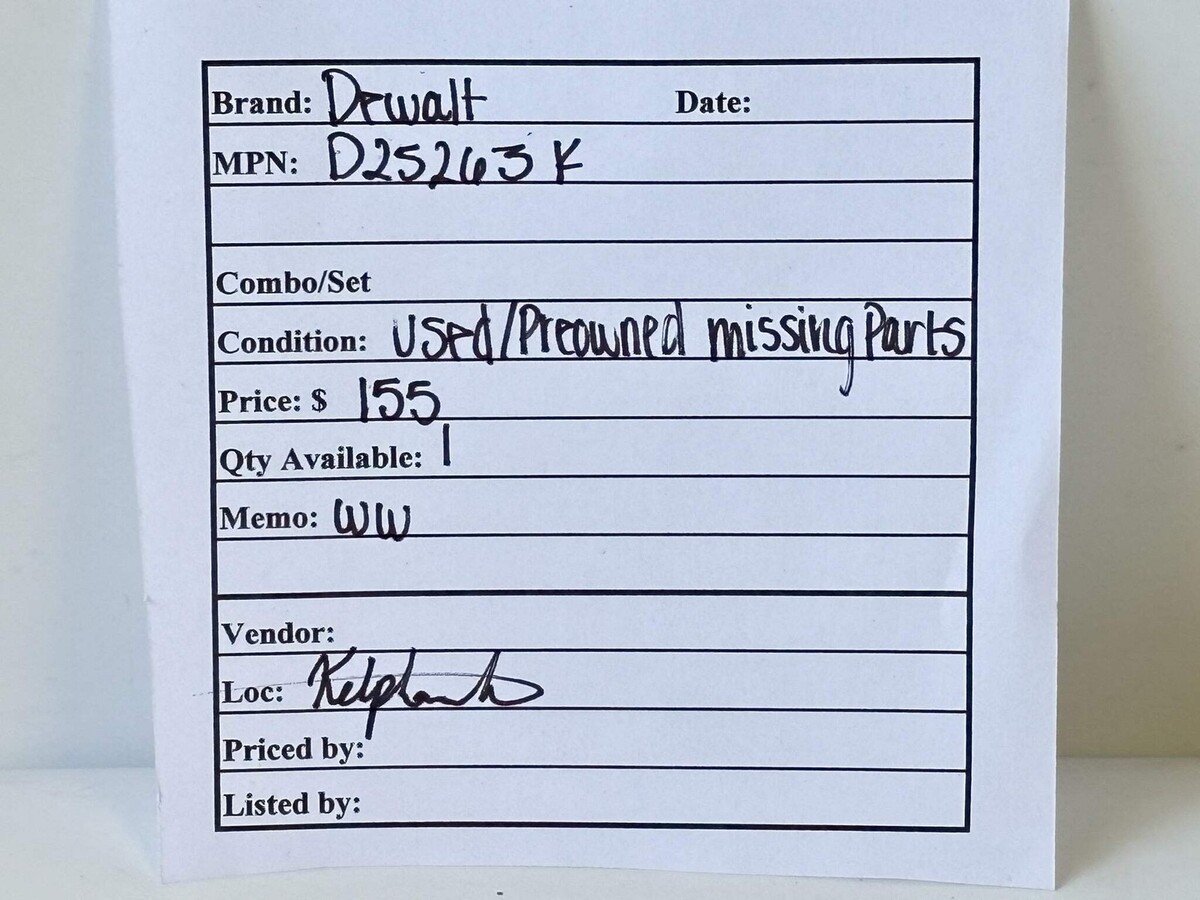 Brand: Dewalt Date:
MPN: D25263K
Combo/Set
Condition: Used/Preowned missing Parts
Price: $ 155
Qty Available: 1
Memo: WW
Vendor:
Loc:
Priced by:
Listed by: